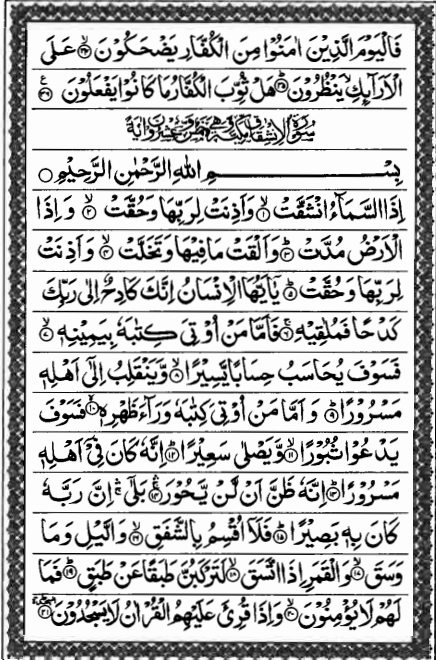 فَالْيَوْمَ الَّذِيْنَ اٰمَنُوْا مِنَ الْكُفَّارِ يَضْحَكُوْنَ ۙ﴿۳۴﴾ عَلَى
الْاَرَآئِكِ ۙ يَنْظُرُوْنَ ؕ﴿۳۵﴾ هَلْ ثُوِّبَ الْكُفَّارُ مَا كَانُوْا يَفْعَلُوْنَ ﴿۳۶﴾
سُوْرَةُ الْاِنْشِقَاقِ مَكِّيَّةٌ وَّهِيَ خَمْسٌ وَّعِشْرُوْنَ اٰيَةً
بِسْمِ اللّٰهِ الرَّحْمٰنِ الرَّحِيْمِ ○
اِذَا السَّمَآءُ انْشَقَّتْ ۙ﴿۱﴾ وَاَذِنَتْ لِرَبِّهَا وَحُقَّتْ ۙ﴿۲﴾ وَ اِذَا
الْاَرْضُ مُدَّتْ ۙ﴿۳﴾ وَاَلْقَتْ مَا فِيْهَا وَتَخَلَّتْ ۙ﴿۴﴾ وَ اَذِنَتْ
لِرَبِّهَا وَحُقَّتْ ؕ﴿۵﴾ يٰۤاَيُّهَا الْاِنْسَانُ اِنَّكَ كَادِحٌ اِلٰى رَبِّكَ
كَدْحًا فَمُلٰقِيْهِ ۚ﴿۶﴾ فَاَمَّا مَنْ اُوْتِيَ كِتٰبَهٗ بِيَمِيْنِهٖ ۙ﴿۷﴾
فَسَوْفَ يُحَاسَبُ حِسَابًا يَّسِيْرًا ۙ﴿۸﴾ وَّيَنْقَلِبُ اِلٰۤى اَهْلِهٖ
مَسْرُوْرًا ؕ﴿۹﴾ وَ اَمَّا مَنْ اُوْتِيَ كِتٰبَهٗ وَرَآءَ ظَهْرِهٖ ۙ﴿۱۰﴾ فَسَوْفَ
يَدْعُوْا ثُبُوْرًا ۙ﴿۱۱﴾ وَّيَصْلٰى سَعِيْرًا ؕ﴿۱۲﴾ اِنَّهٗ كَانَ فِيْۤ اَهْلِهٖ
مَسْرُوْرًا ؕ﴿۱۳﴾ اِنَّهٗ ظَنَّ اَنْ لَّنْ يَّحُوْرَ ۚ﴿۱۴﴾ بَلٰۤى ۚ اِنَّ رَبَّهٗ
كَانَ بِهٖ بَصِيْرًا ؕ﴿۱۵﴾ فَلَاۤ اُقْسِمُ بِالشَّفَقِ ۙ﴿۱۶﴾ وَالَّيْلِ وَمَا
وَسَقَ ۙ﴿۱۷﴾ وَالْقَمَرِ اِذَا اتَّسَقَ ۙ﴿۱۸﴾ لَتَرْكَبُنَّ طَبَقًا عَنْ طَبَقٍ ؕ﴿۱۹﴾ فَمَا
لَهُمْ لَا يُؤْمِنُوْنَ ۙ﴿۲۰﴾ وَاِذَا قُرِئَ عَلَيْهِمُ الْقُرْاٰنُ لَا يَسْجُدُوْنَ ﴿۲۱﴾